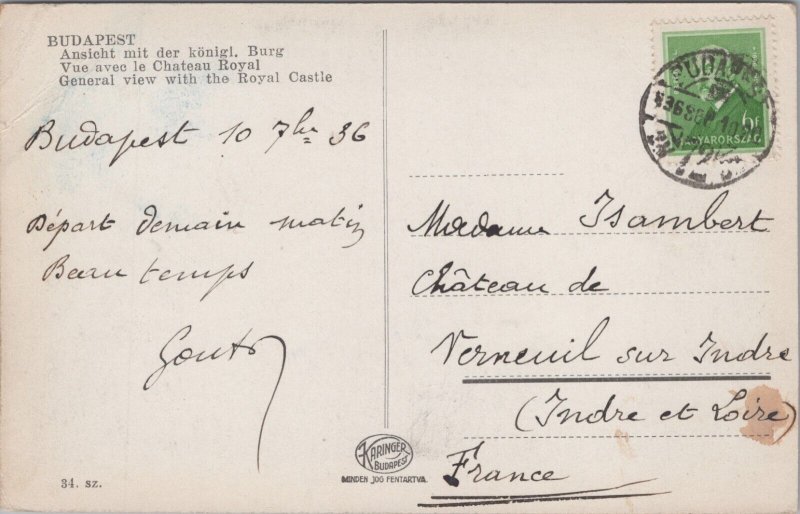 BUDAPEST
Ansicht mit der königl. Burg
Vue avec le Chateau Royal
General view with the Royal Castle
Budapest 10 7bre 36
Départ demain matin
Beau temps
34. sz.
KARINGER
BUDAPEST
MINDEN JOG FENTARTVA.
BUDAPEST
936 SEP 10
6f
MAGYARORSZÁG
Madame Isambert
Château de
Verneuil sur Indre
(Indre et Loire)
France